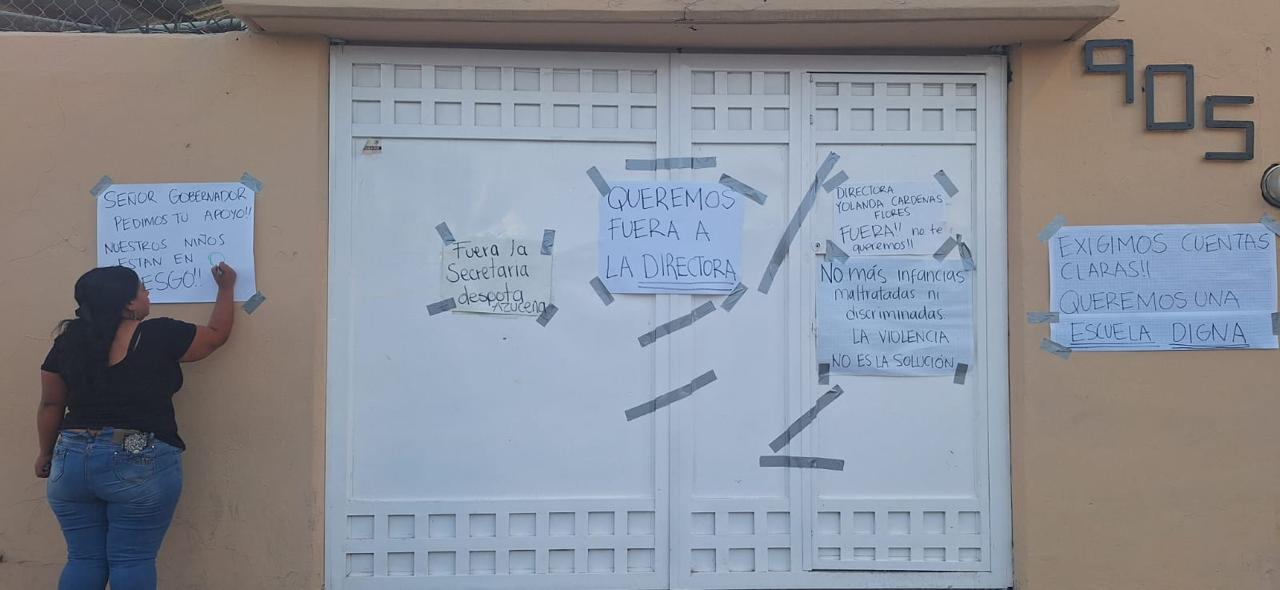 SEÑOR GOBERNADOR
PEDIMOS TU APOYO!!
NUESTROS NIÑOS
ESTAN EN
ESGO!!
Fuera la
Secretaria
despota
Azucena
QUEREMOS
FUERA A
LA DIRECTORA
DIRECTORA
YOLANDA CARDENAS
FLORES
FUERA!! no te
queremos!!
No más infancias
maltratadas ni
discriminadas.
LA VIOLENCIA
NO ES LA SOLUCIÓN
905
EXIGIMOS CUENTAS
CLARAS!!
QUEREMOS UNA
ESCUELA DIGNA